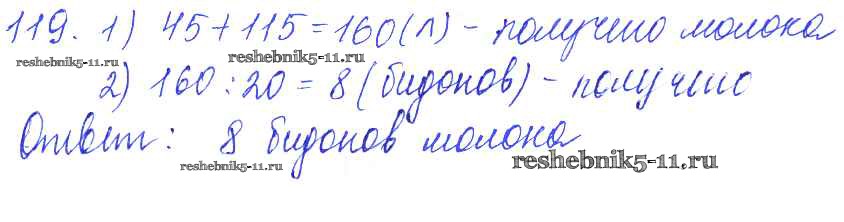 119. 1) 45+115=160(л) - получено молока
reshebnik5-11.ru reshebnik5-11.ru
2) 160:20=8(бидонов) - получено
Ответ: 8 бидонов молока
reshebnik5-11.ru reshebnik5-11.ru